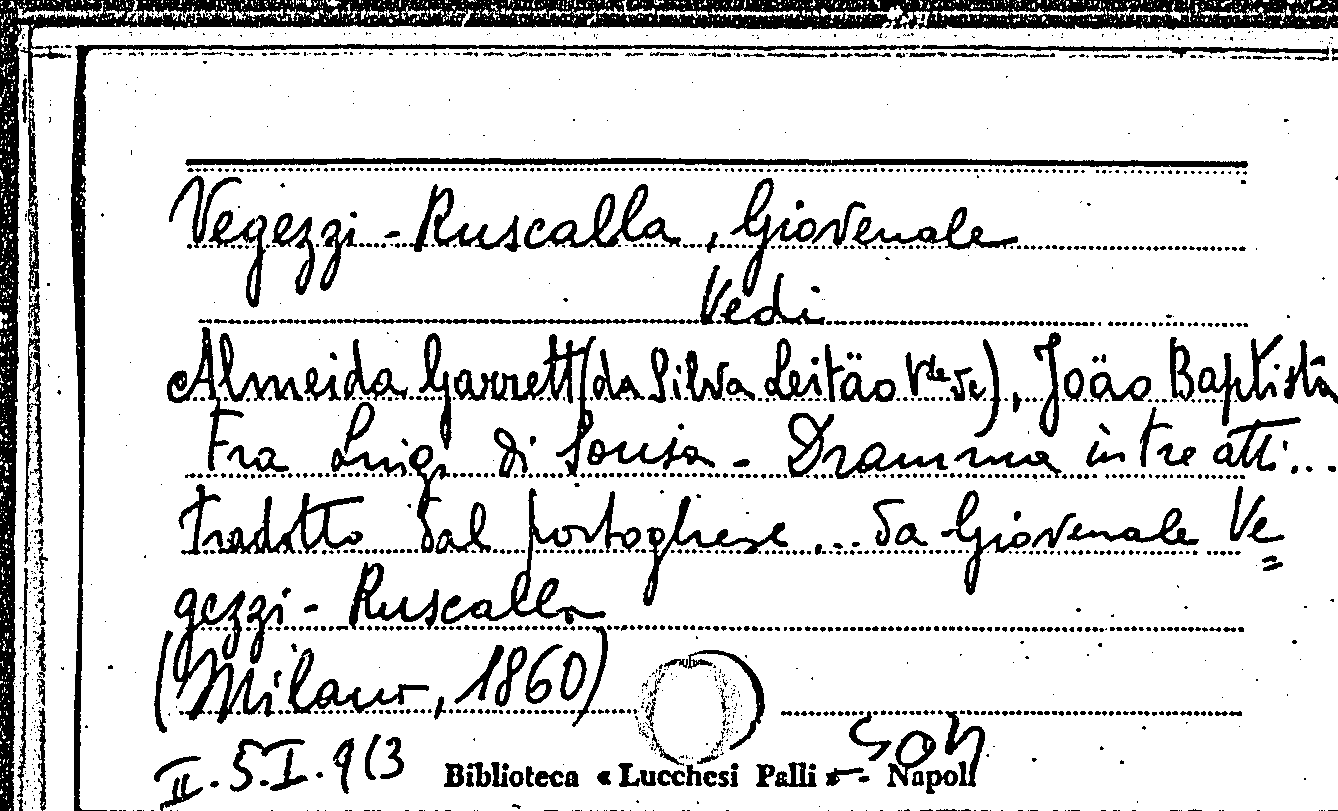 Vegezzi-Ruscalla, Giovenale
Vedi
Almeida Garrett (da Silva Leitão Vte de), João Baptista
Fra Luigi di Sousa - Dramma in tre atti...
Tradotto dal portoghese ... da Giovenale Ve=
gezzi-Ruscalla
(Milano, 1860)
II.5.I.9(3
Biblioteca « Lucchesi Palli » - Napoli